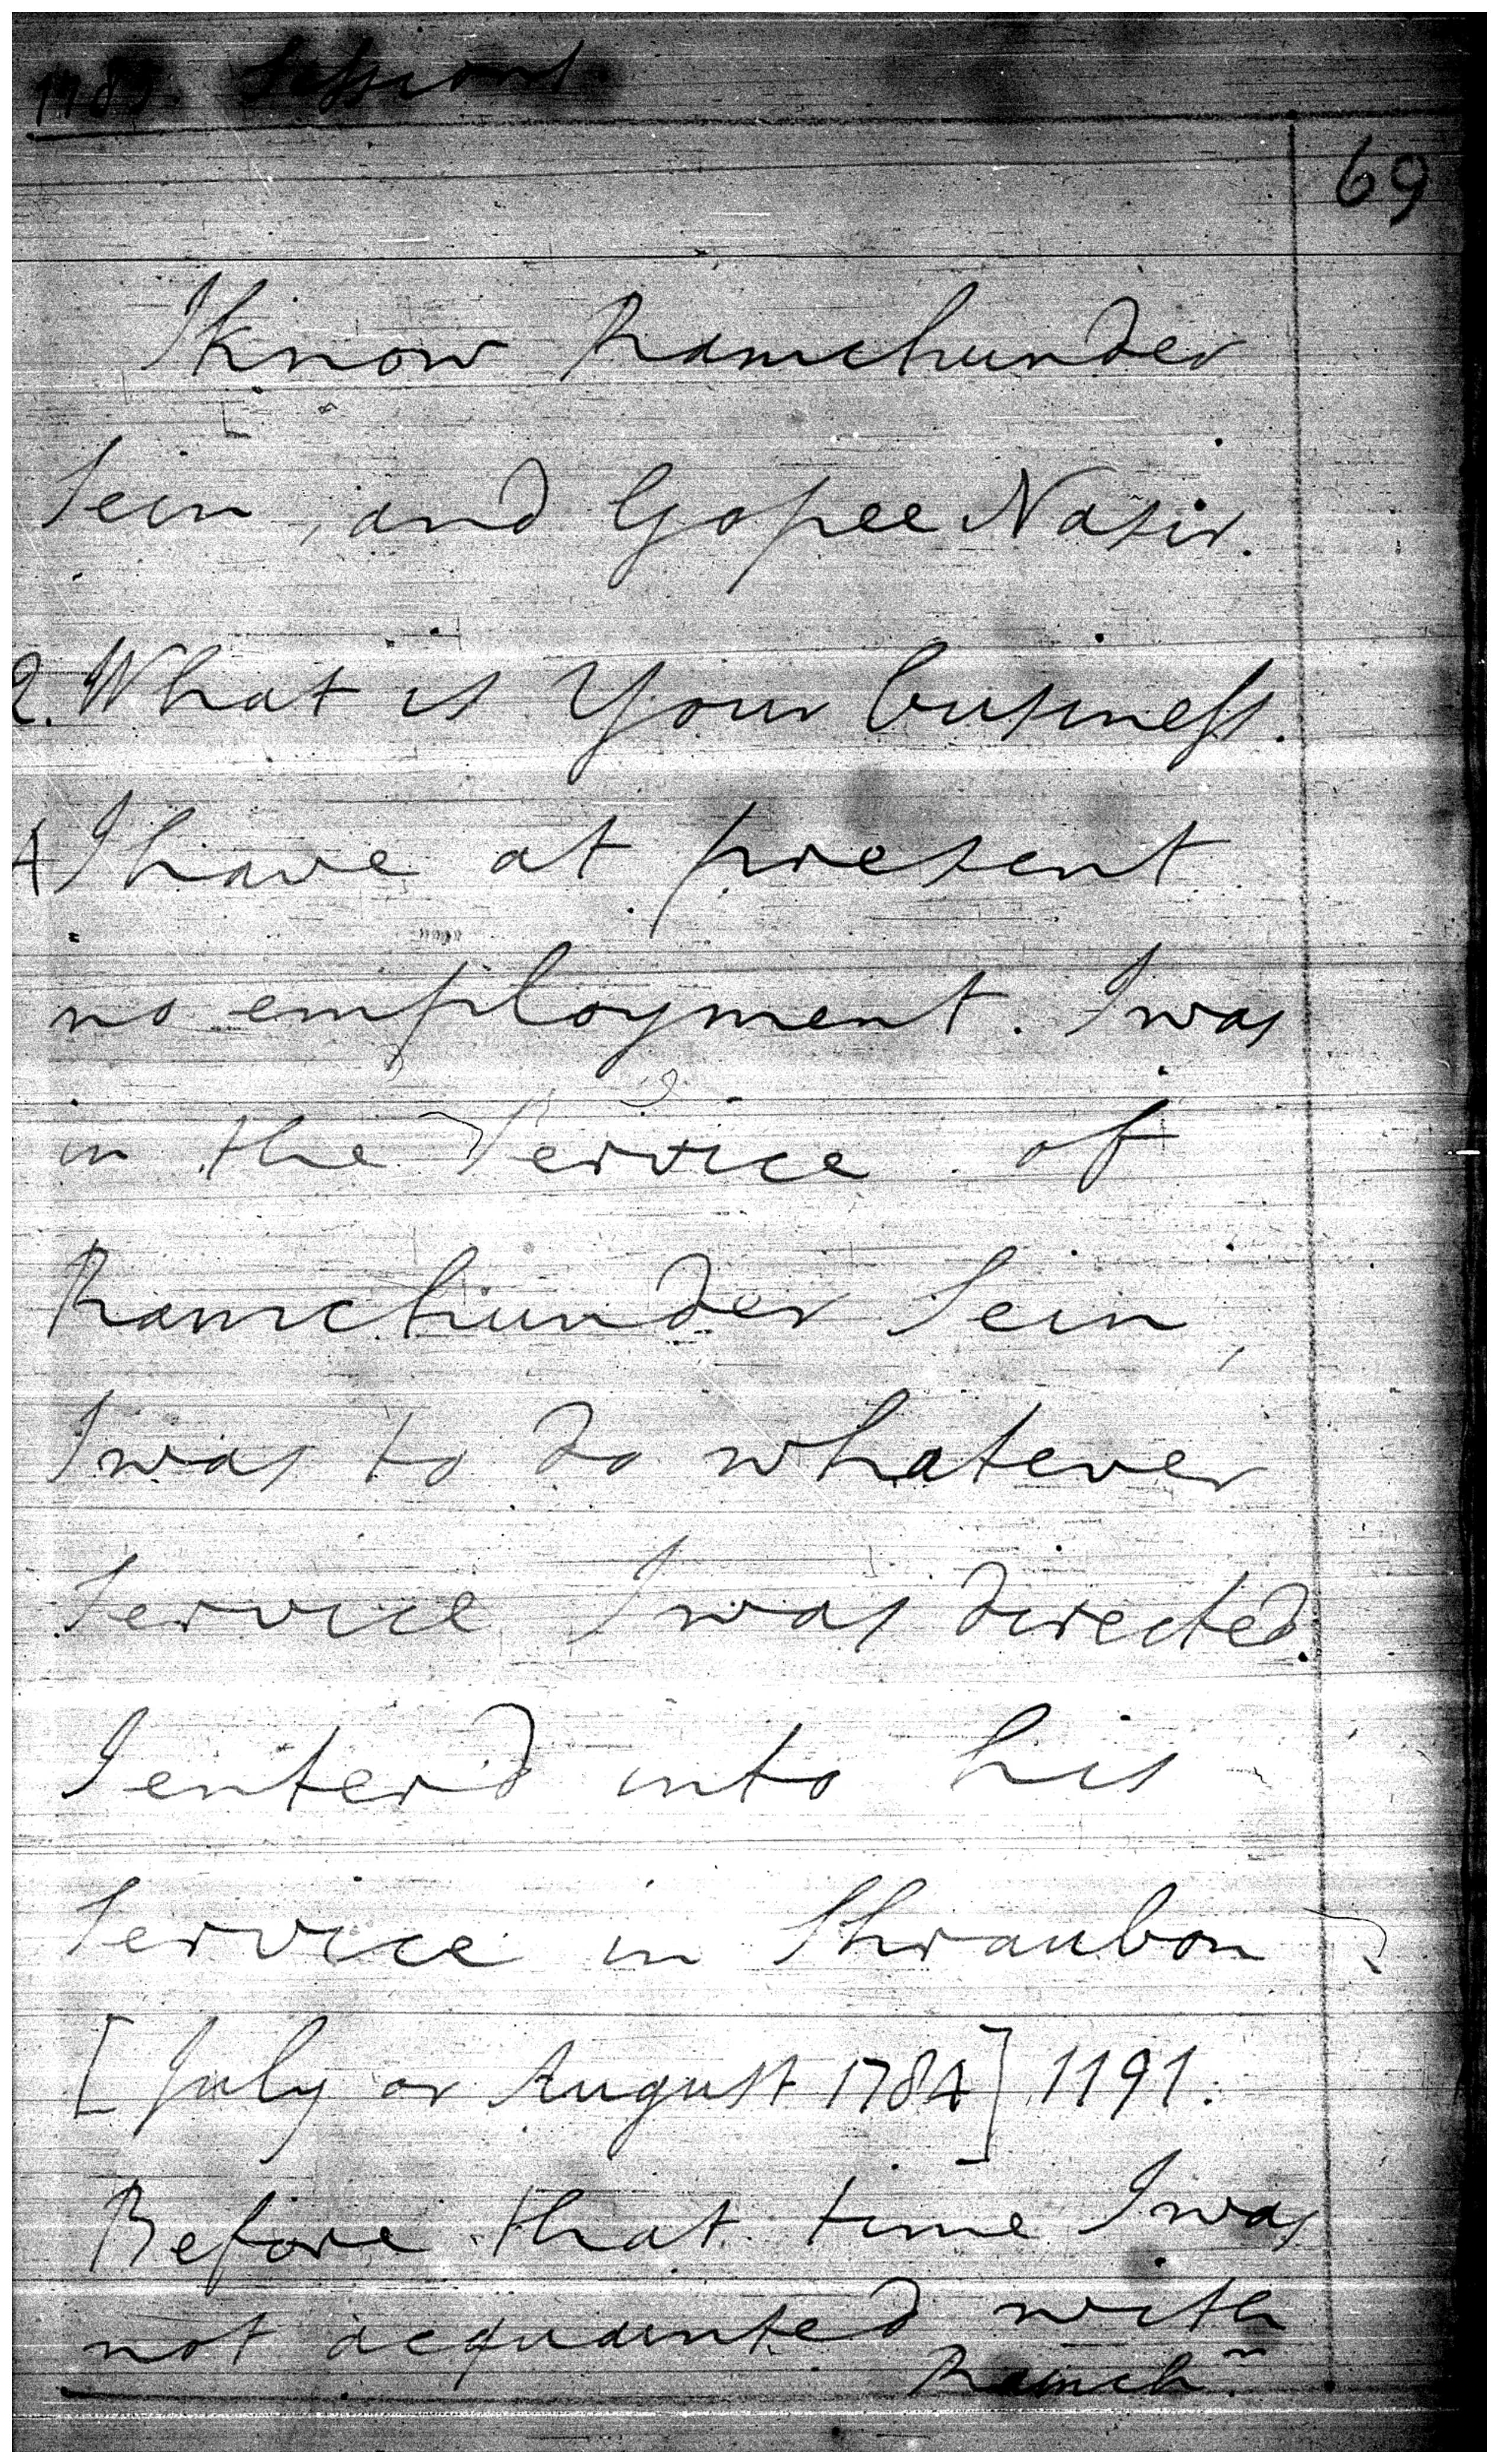 1789. Sessions
69
I know Ramchunder
Sein, and Gopee Nasir.
Q. What is Your business.
A I have at present
no employment. I was
in the Service of
Ramchunder Sein,
I was to do whatever
Service I was directed.
I enter'd into his
Service in Shraubon
[July or August 1784] 1191.
Before that time I was
not acquainted with
Ramch.